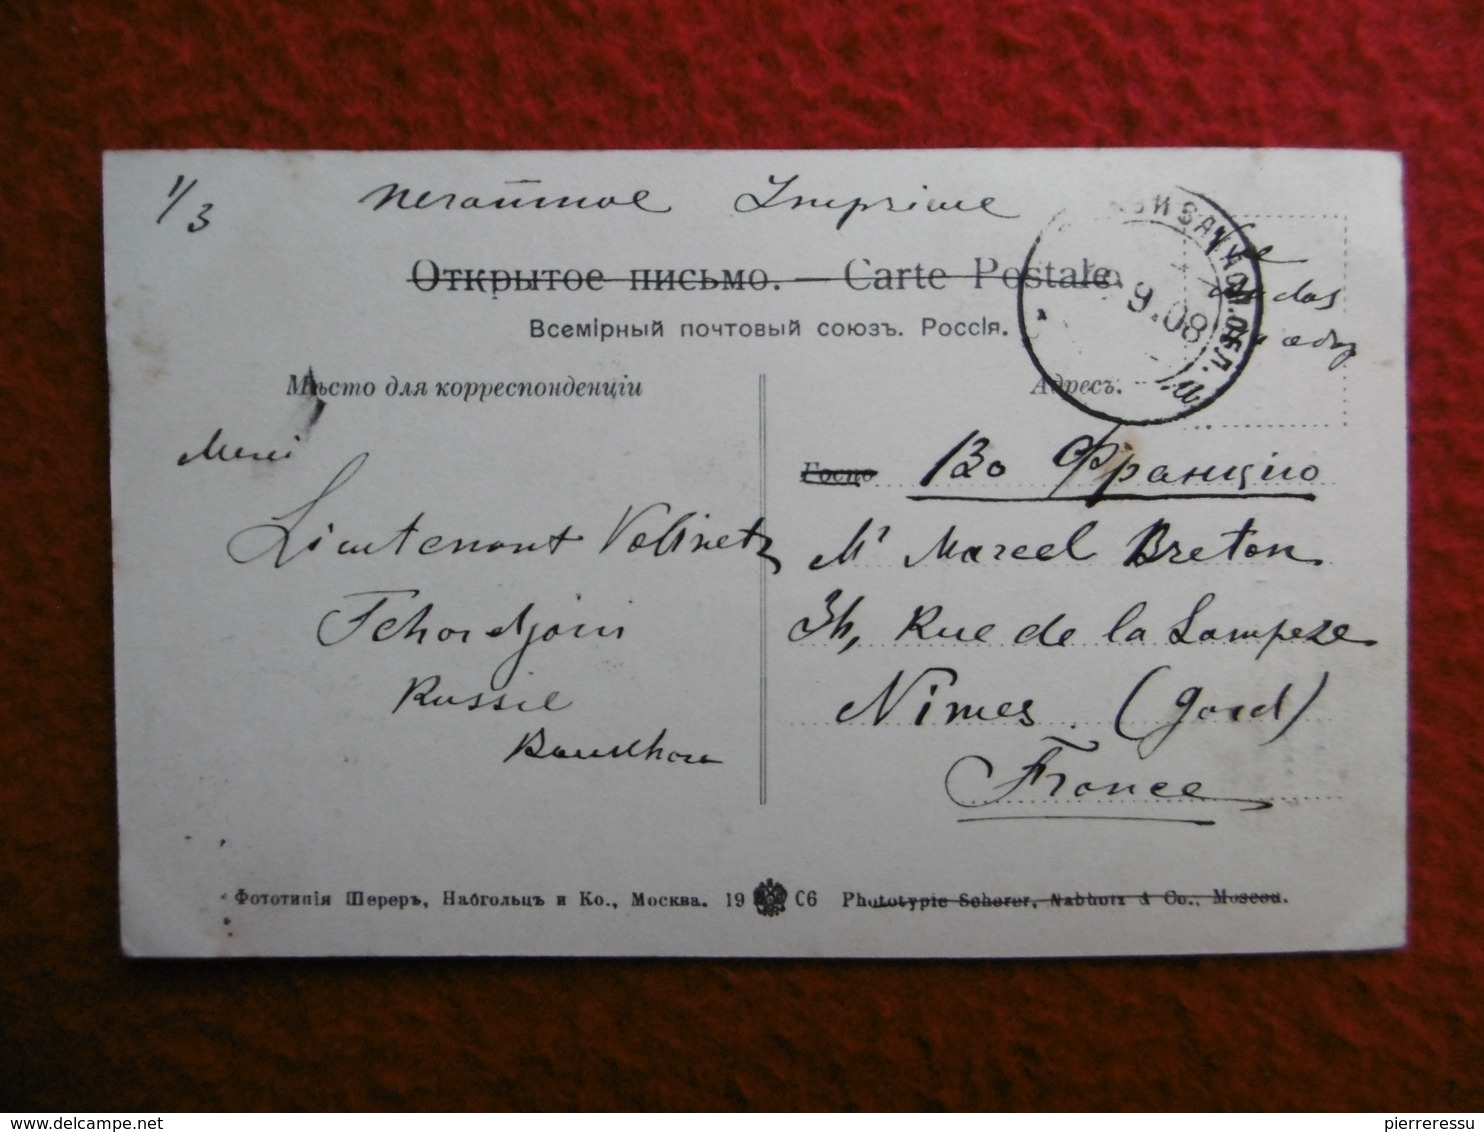 1/3
печатное Imprimé
Открытое письмо. — Carte Postale.
9.08
Всемірный почтовый союзъ. Россія.
Мѣсто для корреспонденціи
Адресъ.
Merci
Lieutenant Volinetz
Russie
Во Францію
Mr Marcel Breton
Rue de la Lampeze
Nîmes (Gard)
France
Фототипія Шереръ, Набгольцъ и Ко., Москва. 19 06 Phototypie Scherer, Nabholz & Co., Moscou.
pierreressu